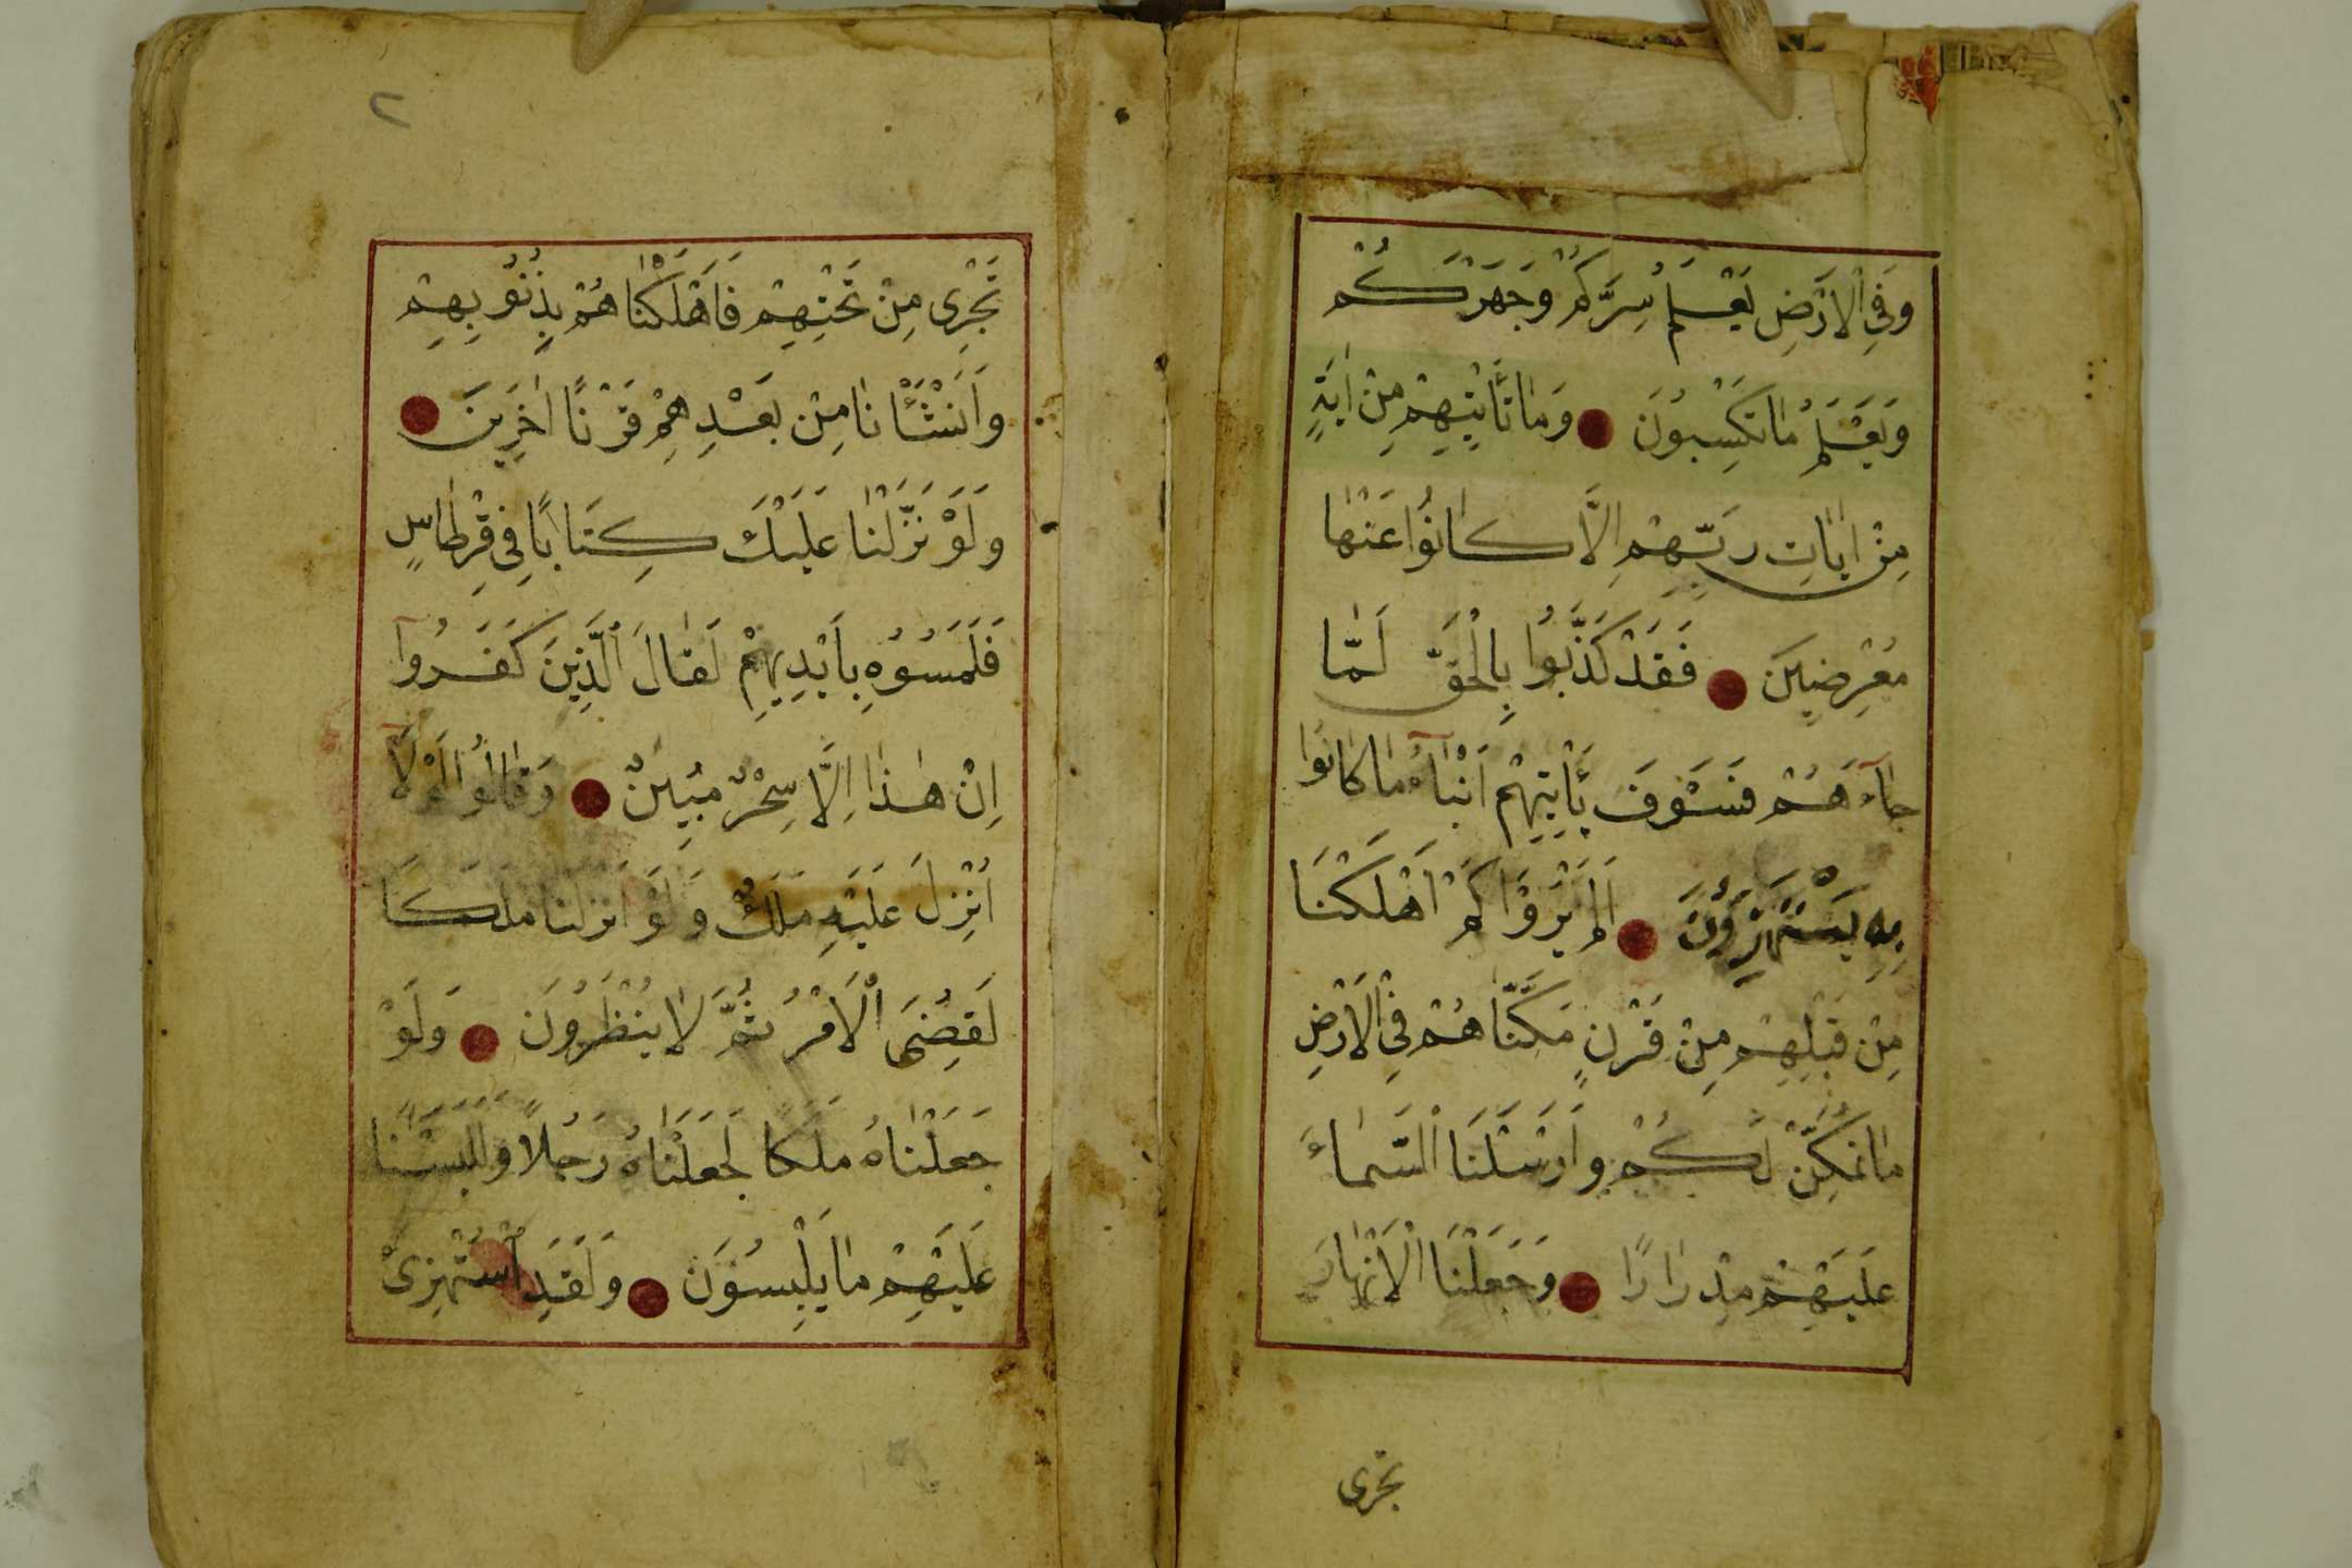 وَفِي الْاَرْضِ يَعْلَمُ سِرَّكُمْ وَجَهْرَكُمْ
وَيَعْلَمُ مَا تَكْسِبُونَ وَمَا تَأْتِيهِمْ مِنْ اٰيَةٍ
مِنْ اٰيَاتِ رَبِّهِمْ اِلَّا كَانُوا عَنْهَا
مُعْرِضِينَ فَقَدْ كَذَّبُوا بِالْحَقِّ لَمَّا
جَآءَهُمْ فَسَوْفَ يَأْتِيهِمْ اَنْبَآءُ مَا كَانُوا
بِهِ يَسْتَهْزِؤُنَ اَلَمْ يَرَوْا كَمْ اَهْلَكْنَا
مِنْ قَبْلِهِمْ مِنْ قَرْنٍ مَكَّنَّاهُمْ فِي الْاَرْضِ
مَا لَمْ نُمَكِّنْ لَكُمْ وَاَرْسَلْنَا السَّمَاءَ
عَلَيْهِمْ مِدْرَارًا وَجَعَلْنَا الْاَنْهَارَ
تجرى
٢
تَجْرِى مِنْ تَحْتِهِمْ فَاَهْلَكْنَاهُمْ بِذُنُوبِهِمْ
وَاَنْشَأْنَا مِنْ بَعْدِهِمْ قَرْنًا اٰخَرِينَ
وَلَوْ نَزَّلْنَا عَلَيْكَ كِتَابًا فِى قِرْطَاسٍ
فَلَمَسُوهُ بِاَيْدِيهِمْ لَقَالَ الَّذِينَ كَفَرُوآ
اِنْ هٰذَا اِلَّا سِحْرٌ مُبِينٌ وَقَالُوا لَوْلَا
اُنْزِلَ عَلَيْهِ مَلَكٌ وَلَوْ اَنْزَلْنَا مَلَكًا
لَقُضِىَ الْاَمْرُ ثُمَّ لَا يُنْظَرُونَ وَلَوْ
جَعَلْنَاهُ مَلَكًا لَجَعَلْنَاهُ رَجُلًا وَلَلَبَسْنَا
عَلَيْهِمْ مَا يَلْبِسُونَ وَلَقَدِ اسْتُهْزِئَ